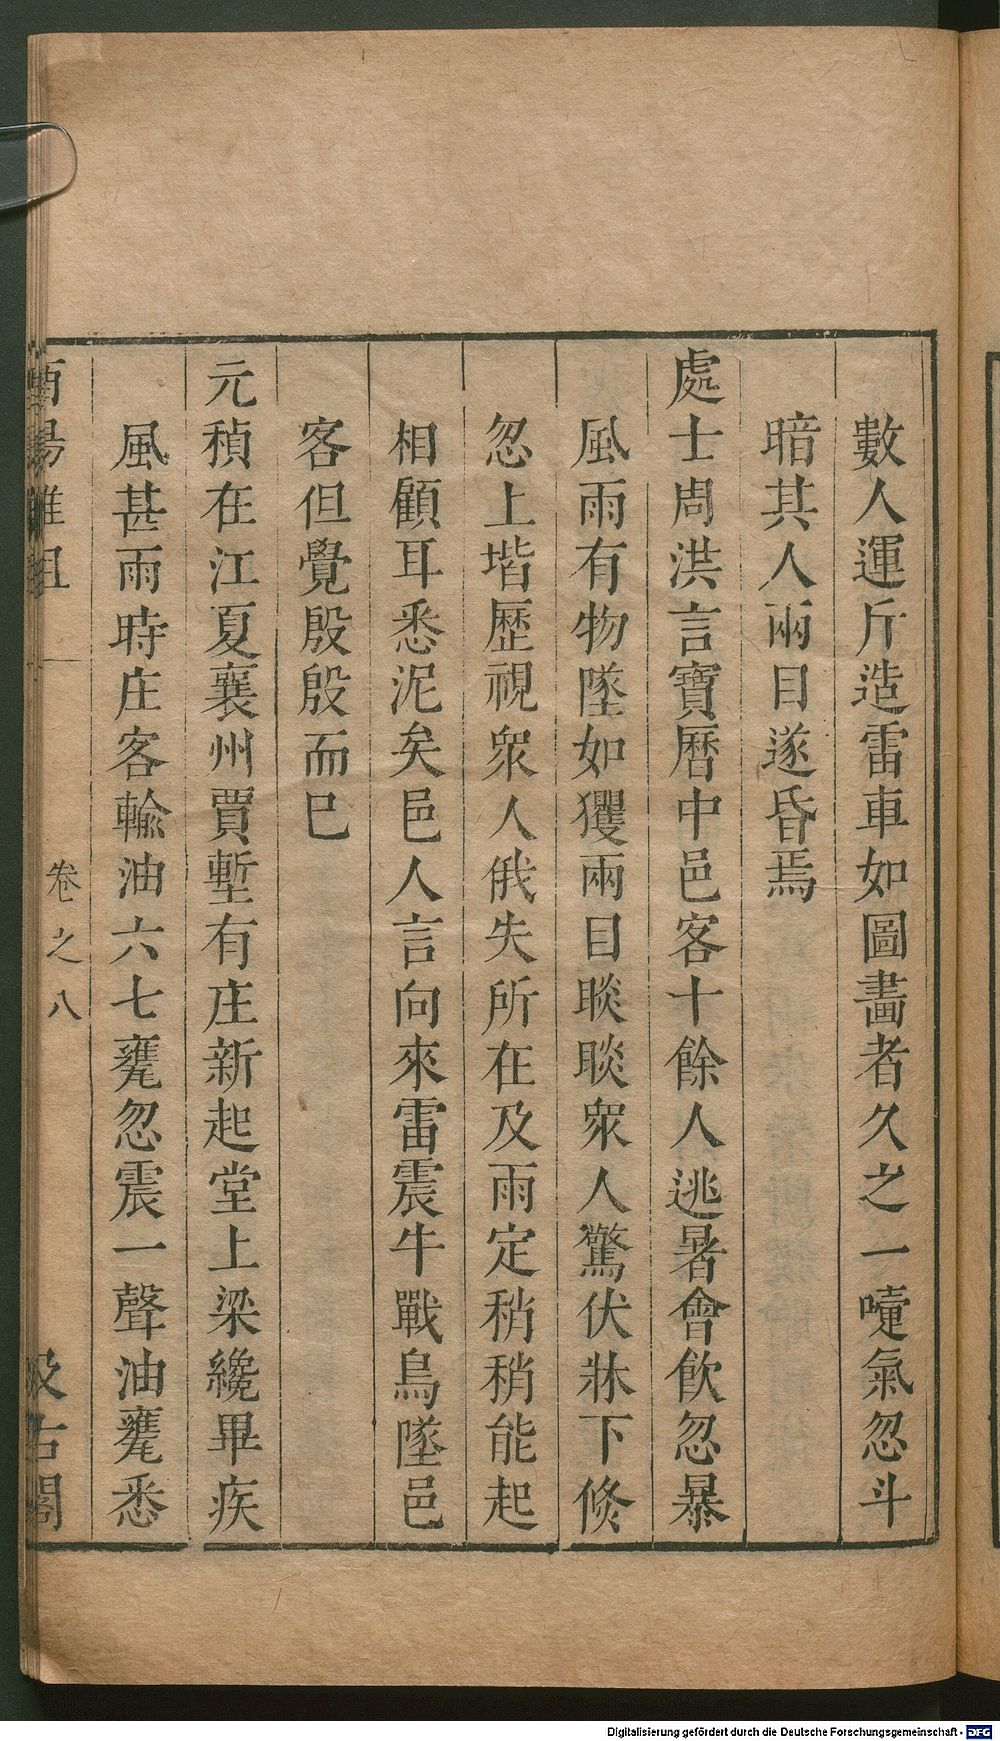 數人運斤造雷車如圖畵者久之一嚏氣忽斗
暗其人兩目遂昏焉
處士周洪言寶曆中邑客十餘人逃暑會飲忽暴
風雨有物墜如玃兩目睒睒衆人驚伏牀下倐
忽上堦歷視衆人俄失所在及雨定稍稍能起
相顧耳悉泥矣邑人言向來雷震牛戰鳥墜邑
客但覺殷殷而已
元稹在江夏襄州賈塹有庄新起堂上梁纔畢疾
風甚雨時庄客輸油六七甕忽震一聲油甕悉
酉陽雜俎 卷之八 汲古閣
Digitalisierung gefördert durch die Deutsche Forschungsgemeinschaft - DFG